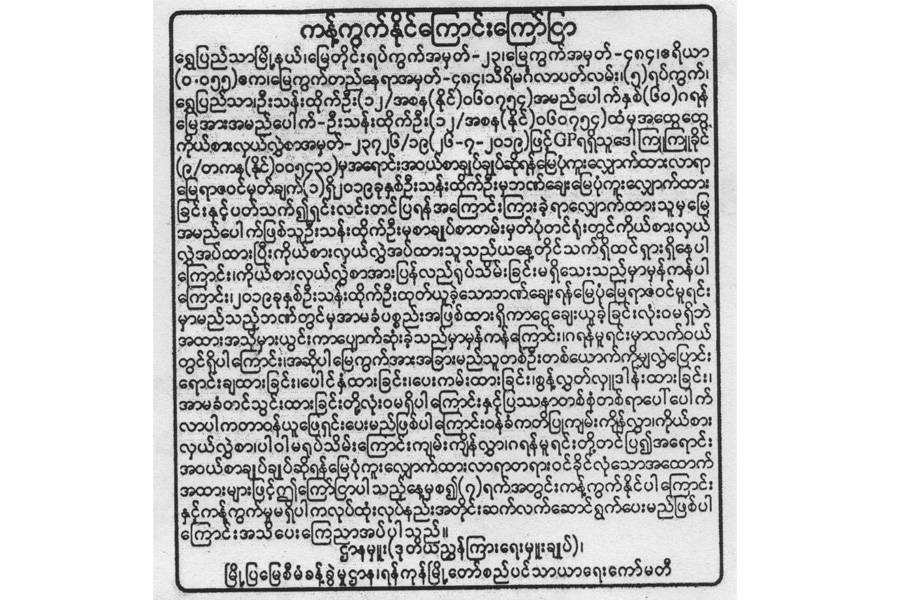 ကန့်ကွက်နိုင်ကြောင်းကြော်ငြာ
ရွှေပြည်သာမြို့နယ်၊မြေတိုင်းရပ်ကွက်အမှတ်-၂၃၊မြေကွက်အမှတ်-၄၈၄၊ဧရိယာ
(၀.၀၅၅)ဧက၊မြေကွက်တည်နေရာအမှတ်-၄၈၄၊သီရိမင်္ဂလာပတ်လမ်း၊(၅)ရပ်ကွက်၊
ရွှေပြည်သာ၊ဦးသန်းထိုက်ဦး(၁၂/အစန(နိုင်)၀၆၀၇၅၄)အမည်ပေါက်နှစ်(၆၀)ဂရန်
မြေအားအမည်ပေါက်-ဦးသန်းထိုက်ဦး(၁၂/အစန(နိုင်)၀၆၀၇၅၄)ထံမှအထွေထွေ
ကိုယ်စားလှယ်လွှဲစာအမှတ်-၂၃၇၂၆/၁၉(၂၆-၇-၂၀၁၉)ဖြင့်GPရရှိသူဒေါ်ကြူကြူခိုင်
(၉/တကန(နိုင်)၀၀၅၄၃၁)မှအရောင်းအဝယ်စာချုပ်ချုပ်ဆိုရန်မြေပုံကူးလျှောက်ထားလာရာ
မြေရာဇဝင်မှတ်ချက်(၁)ရှိ၂၀၁၉ခုနှစ်ဦးသန်းထိုက်ဦးမှဘဏ်ချေးမြေပုံကူးလျှောက်ထား
ခြင်းနှင့်ပတ်သက်၍ရှင်းလင်းတင်ပြရန်အကြောင်းကြားခဲ့ရာလျှောက်ထားသူမှမြေ
အမည်ပေါက်ဖြစ်သူဦးသန်းထိုက်ဦးမှစာချုပ်စာတမ်းမှတ်ပုံတင်ရုံးတွင်ကိုယ်စားလှယ်
လွှဲအပ်ထားပြီးကိုယ်စားလှယ်လွှဲအပ်ထားသူသည်ယနေ့တိုင်သက်ရှိထင်ရှားရှိနေပါ
ကြောင်း၊ကိုယ်စားလှယ်လွှဲစာအားပြန်လည်ရုပ်သိမ်းခြင်းမရှိသေးသည်မှာမှန်ကန်ပါ
ကြောင်း၊၂၀၁၉ခုနှစ်ဦးသန်းထိုက်ဦးထုတ်ယူခဲ့သောဘဏ်ချေးရန်မြေပုံမြေရာဇဝင်မူရင်း
မှာမည်သည့်ဘဏ်တွင်မှအာမခံပစ္စည်းအဖြစ်ထားရှိကာငွေချေးယူခဲ့ခြင်းလုံးဝမရှိဘဲ
အထားအသိုမှားယွင်းကာပျောက်ဆုံးခဲ့သည်မှာမှန်ကန်ကြောင်း၊ဂရန်မူရင်းမှာလက်ဝယ်
တွင်ရှိပါကြောင်း၊အဆိုပါမြေကွက်အားအခြားမည်သူတစ်ဦးတစ်ယောက်ကိုမျှလွှဲပြောင်း
ရောင်းချထားခြင်း၊ပေါင်နှံထားခြင်း၊ပေးကမ်းထားခြင်း၊စွန့်လွှတ်လှူဒါန်းထားခြင်း၊
အာမခံတင်သွင်းထားခြင်းတို့လုံးဝမရှိပါကြောင်းနှင့်ပြဿနာတစ်စုံတစ်ရာပေါ်ပေါက်
လာပါကတာဝန်ယူဖြေရှင်းပေးမည်ဖြစ်ပါကြောင်းဝန်ခံကတိပြုကျမ်းကျိန်လွှာ၊ကိုယ်စား
လှယ်လွှဲစာ၊ပါဝါမရုပ်သိမ်းကြောင်းကျမ်းကျိန်လွှာ၊ဂရန်မူရင်းတို့တင်ပြ၍အရောင်း
အဝယ်စာချုပ်ချုပ်ဆိုရန်မြေပုံကူးလျှောက်ထားလာရာတရားဝင်ခိုင်လုံသောအထောက်
အထားများဖြင့်ဤကြော်ငြာပါသည့်နေ့မှစ၍(၇)ရက်အတွင်းကန့်ကွက်နိုင်ပါကြောင်း
နှင့်ကန့်ကွက်မှုမရှိပါကလုပ်ထုံးလုပ်နည်းအတိုင်းဆက်လက်ဆောင်ရွက်ပေးမည်ဖြစ်ပါ
ကြောင်းအသိပေးကြေညာအပ်ပါသည်။
ဌာနမှူး(ဒုတိယညွှန်ကြားရေးမှူးချုပ်)၊
မြို့ပြမြေစီမံခန့်ခွဲမှုဌာန၊ရန်ကုန်မြို့တော်စည်ပင်သာယာရေးကော်မတီ